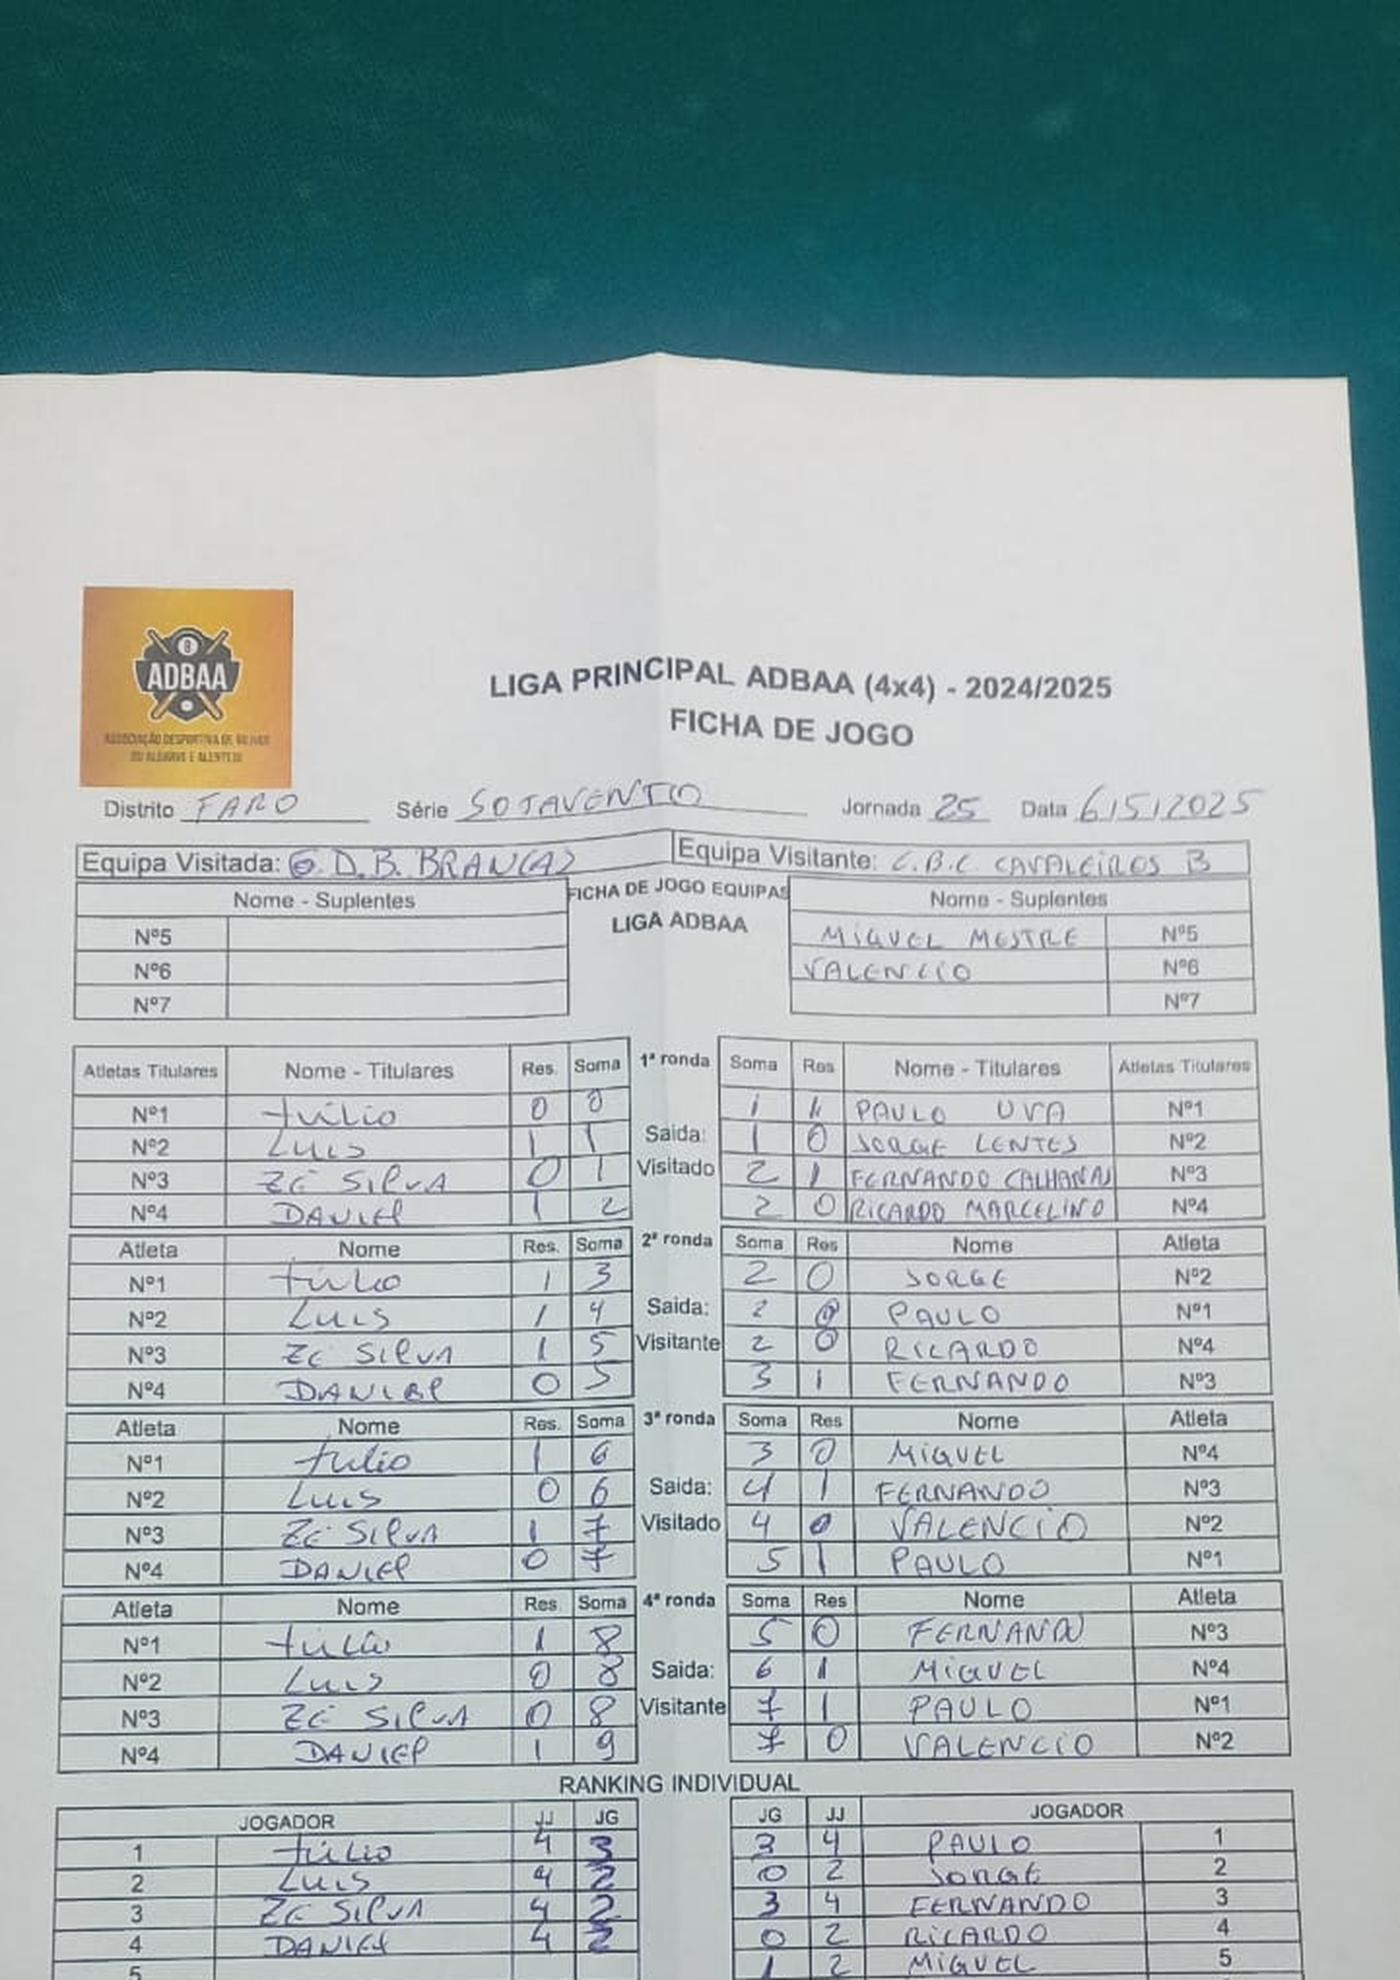 8
ADBAA
ASSOCIAÇÃO DESPORTIVA DE BILHAR
DO ALGARVE E ALENTEJO
LIGA PRINCIPAL ADBAA (4x4) - 2024/2025
FICHA DE JOGO
Distrito FARO Série SOTAVENTO Jornada 25 Data 6/5/2025
Equipa Visitada: G.D.B. BRANCAS Equipa Visitante: C.B.C CAVALEIROS B
Nome - Suplentes FICHA DE JOGO EQUIPAS Nome - Suplentes
LIGA ADBAA
Nº5 MIGUEL MESTRE Nº5
Nº6 VALENCIO Nº6
Nº7 Nº7
Atletas Titulares Nome - Titulares Res. Soma 1ª ronda Soma Res Nome - Titulares Atletas Titulares
Nº1 túlio 0 0 1 1 PAULO UVA Nº1
Nº2 Luis 1 1 Saida: 1 0 JORGE LENTES Nº2
Nº3 ZÉ SILVA 0 1 Visitado 2 1 FERNANDO CALHANAS Nº3
Nº4 DANIEL 1 2 2 0 RICARDO MARCELINO Nº4
Atleta Nome Res. Soma 2ª ronda Soma Res Nome Atleta
Nº1 túlio 1 3 2 0 JORGE Nº2
Nº2 Luis 1 4 Saida: 2 0 PAULO Nº1
Nº3 ZÉ SILVA 1 5 Visitante 2 0 RICARDO Nº4
Nº4 DANIEL 0 5 3 1 FERNANDO Nº3
Atleta Nome Res. Soma 3ª ronda Soma Res Nome Atleta
Nº1 tulio 1 6 3 0 MIGUEL Nº4
Nº2 Luis 0 6 Saida: 4 1 FERNANDO Nº3
Nº3 ZÉ SILVA 1 7 Visitado 4 0 VALENCIO Nº2
Nº4 DANIEL 0 7 5 1 PAULO Nº1
Atleta Nome Res. Soma 4ª ronda Soma Res Nome Atleta
Nº1 túlio 1 8 5 0 FERNANDO Nº3
Nº2 Luis 0 8 Saida: 6 1 MIGUEL Nº4
Nº3 ZÉ SILVA 0 8 Visitante 7 1 PAULO Nº1
Nº4 DANIEL 1 9 7 0 VALENCIO Nº2
RANKING INDIVIDUAL
JOGADOR JJ JG JG JJ JOGADOR
1 túlio 4 3 3 4 PAULO 1
2 Luis 4 2 0 2 JORGE 2
3 ZÉ SILVA 4 2 3 4 FERNANDO 3
4 DANIEL 4 2 0 2 RICARDO 4
5 1 2 MIGUEL 5